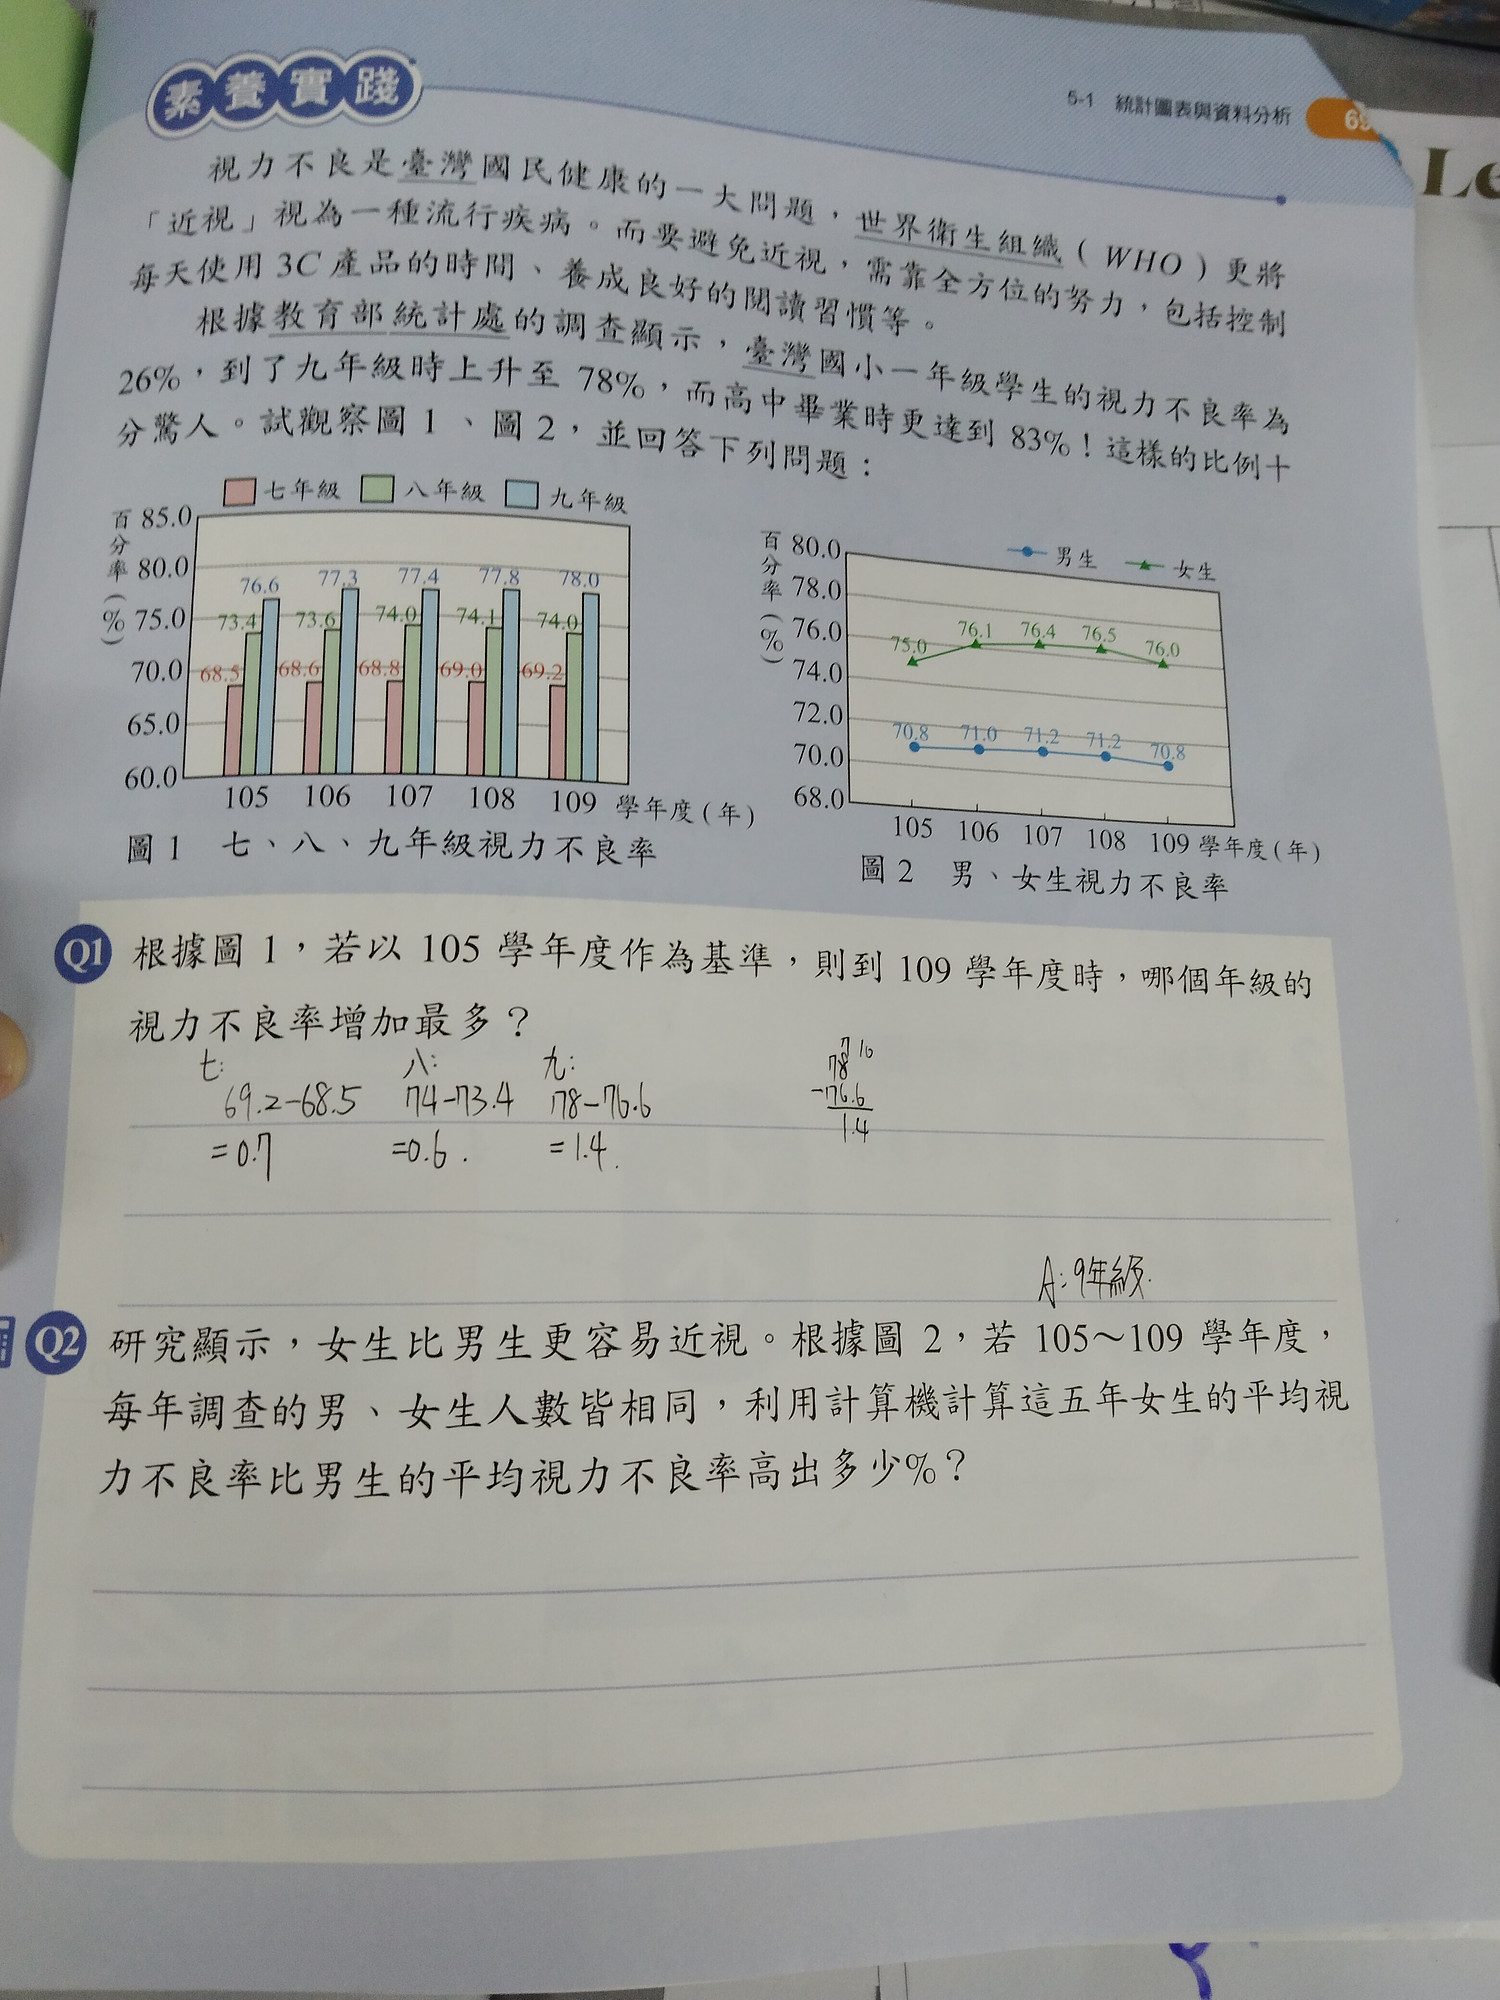 素養實踐
5-1 統計圖表與資料分析
69
Le
視力不良是臺灣國民健康的一大問題，世界衛生組織（WHO）更將
「近視」視為一種流行疾病。而要避免近視，需靠全方位的努力，包括控制
每天使用3C產品的時間、養成良好的閱讀習慣等。
根據教育部統計處的調查顯示，臺灣國小一年級學生的視力不良率為
26%，到了九年級時上升至78%，而高中畢業時更達到83%！這樣的比例十
分驚人。試觀察圖1、圖2，並回答下列問題：
七年級 八年級 九年級
百分率(%)
85.0
80.0
75.0
70.0
65.0
60.0
76.6 77.3 77.4 77.8 78.0
73.4 73.6 74.0 74.1 74.0
68.5 68.6 68.8 69.0 69.2
105 106 107 108 109 學年度(年)
圖1 七、八、九年級視力不良率
男生 女生
百分率(%)
80.0
78.0
76.0
74.0
72.0
70.0
68.0
75.0 76.1 76.4 76.5 76.0
70.8 71.0 71.2 71.2 70.8
105 106 107 108 109 學年度(年)
圖2 男、女生視力不良率
Q1 根據圖1，若以105學年度作為基準，則到109學年度時，哪個年級的
視力不良率增加最多？
七: 八: 九:
69.2-68.5 74-73.4 78-76.6
=0.7 =0.6. =1.4.
7 10
78
-76.6
1.4
A:9年級.
Q2 研究顯示，女生比男生更容易近視。根據圖2，若105～109學年度，
每年調查的男、女生人數皆相同，利用計算機計算這五年女生的平均視
力不良率比男生的平均視力不良率高出多少%？